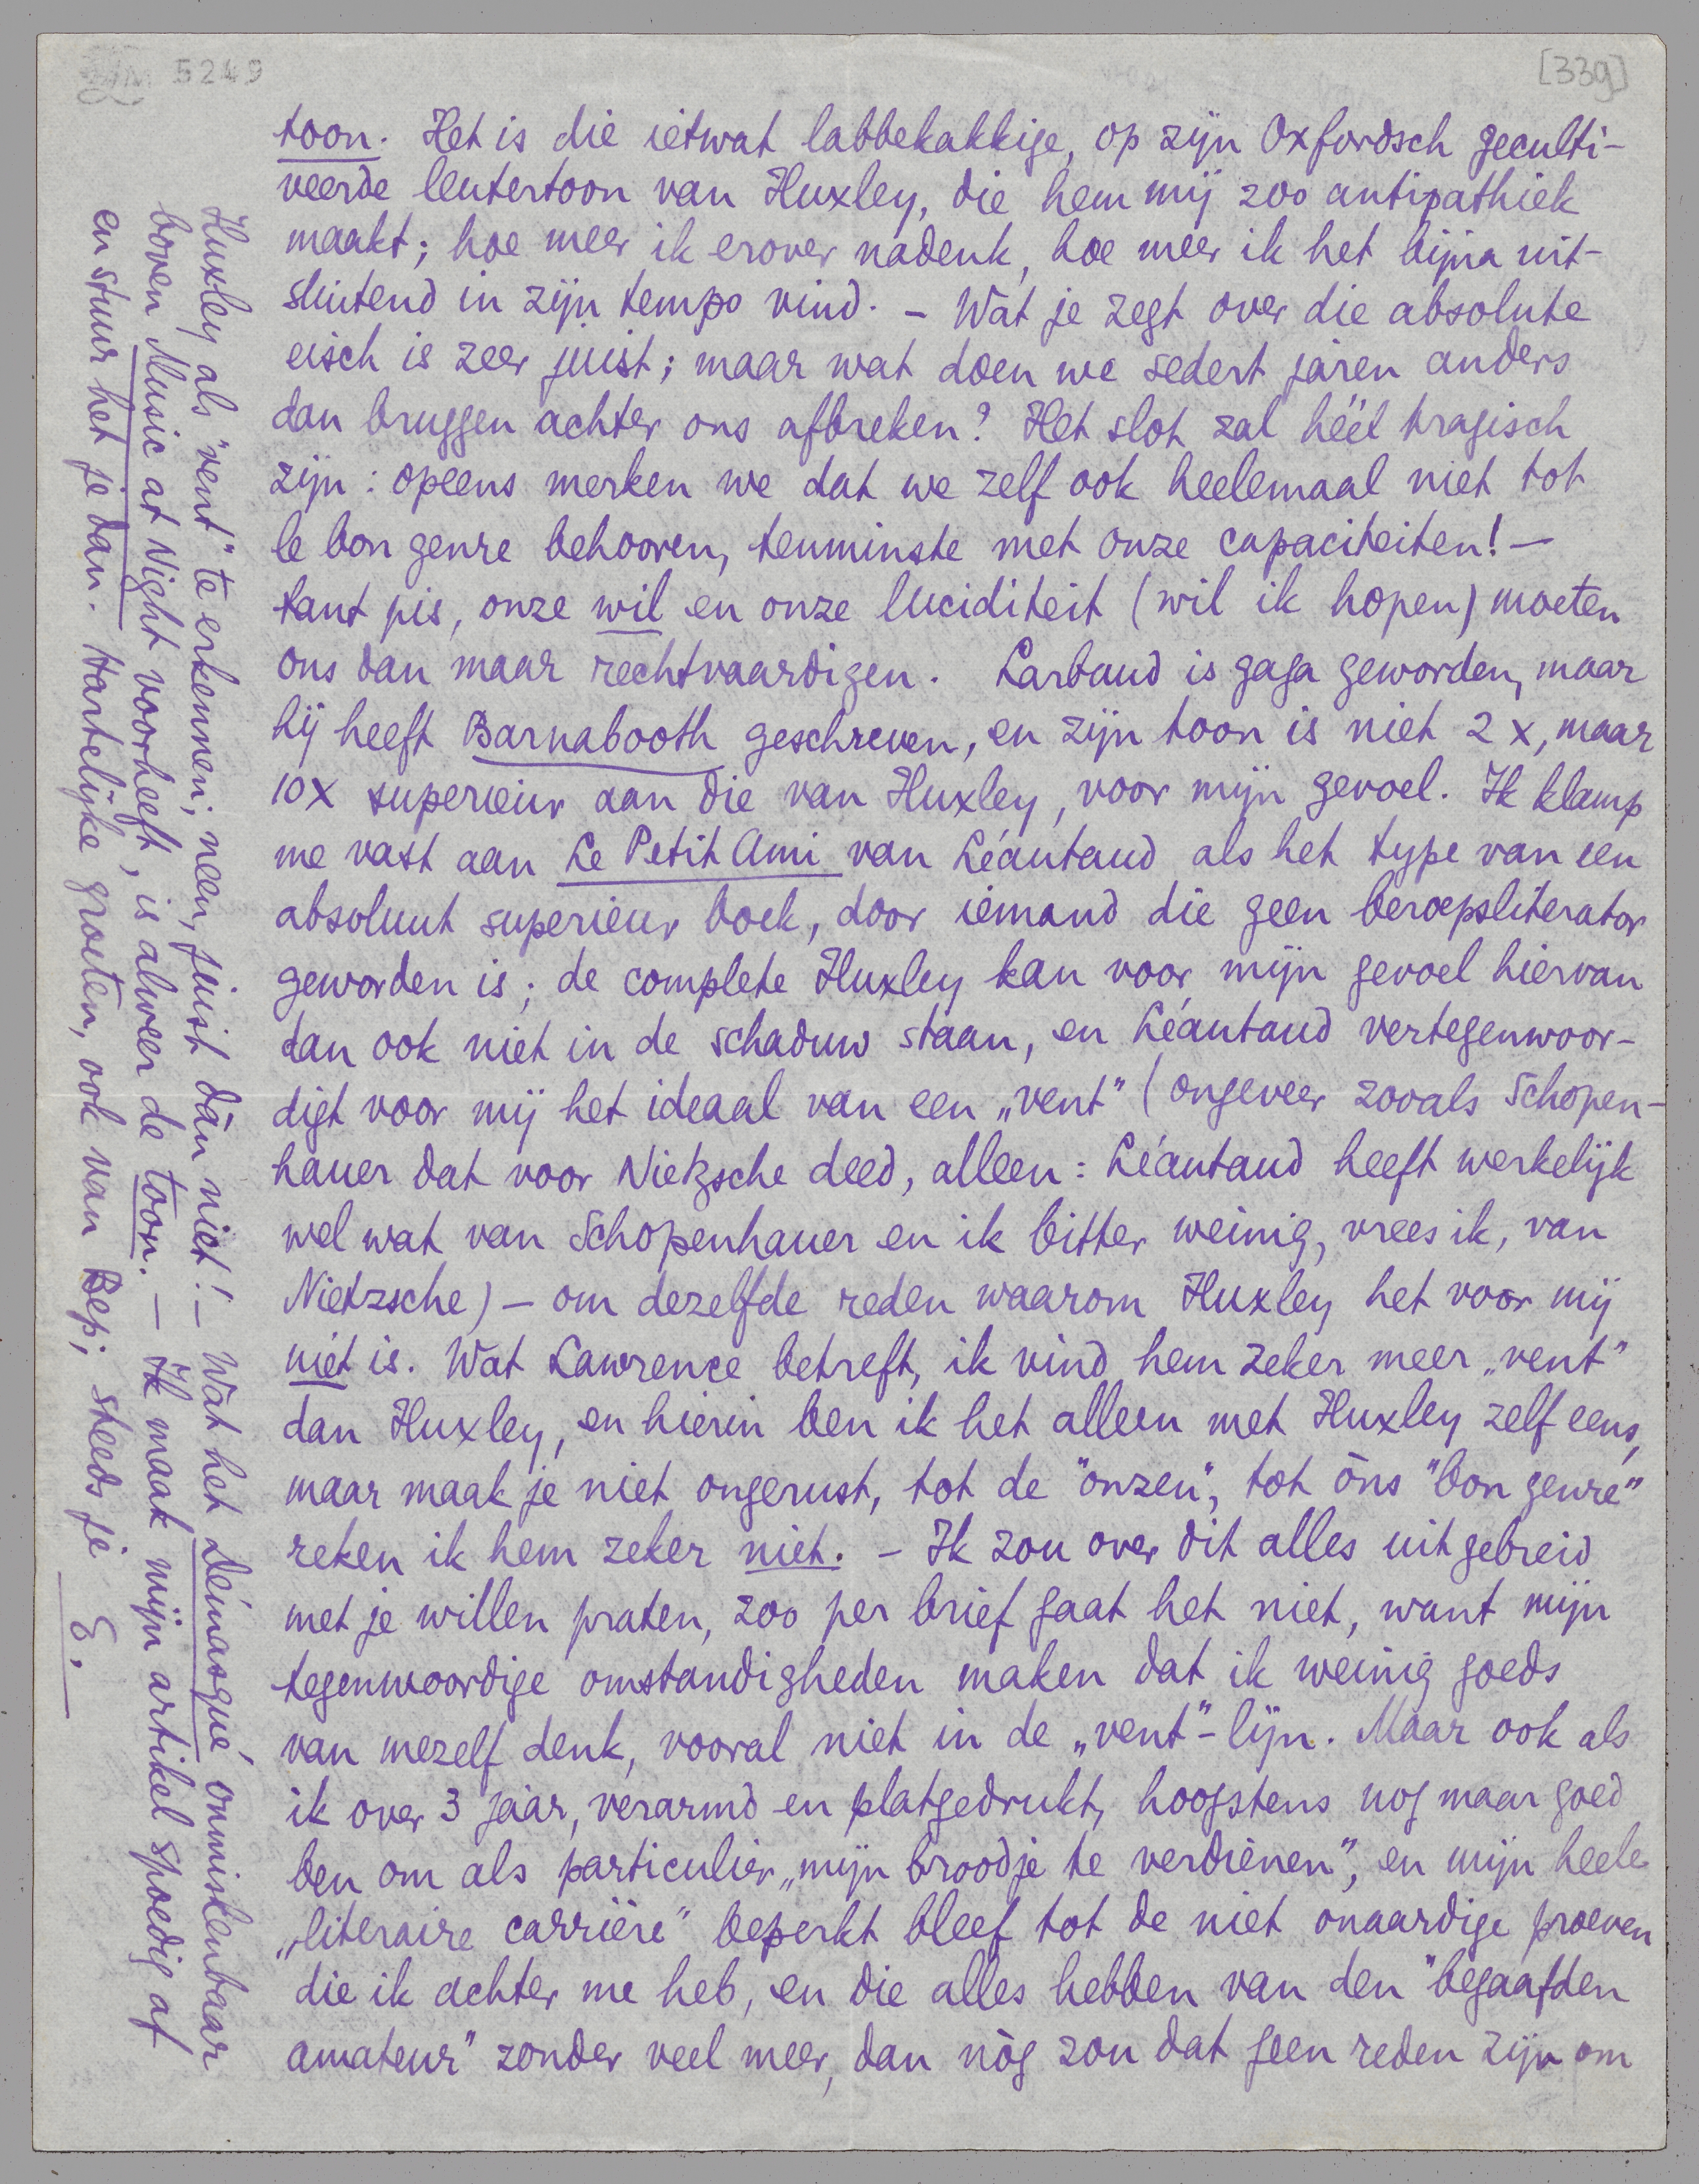 5249
[339]
toon. Het is die ietwat labbekakkige, op zijn Oxfordsch geculti-
veerde leutertoon van Huxley, die hem mij zoo antipathiek
maakt; hoe meer ik erover nadenk, hoe meer ik het bijna uit-
sluitend in zijn tempo vind. – Wat je zegt over die absolute
eisch is zeer juist; maar wat doen we sedert jaren anders
dan bruggen achter ons afbreken? Het slot zal héél tragisch
zijn: opeens merken we dat we zelf ook heelemaal niet tot
le bon genre behooren, tenminste met onze capaciteiten! –
tant pis, onze wil en onze luciditeit (wil ik hopen) moeten
ons dan maar rechtvaardigen. Larbaud is gaga geworden, maar
hij heeft Barnabooth geschreven, en zijn toon is niet 2 x, maar
10 x superieur aan die van Huxley, voor mijn gevoel. Ik klamp
me vast aan Le Petit Ami van Léautaud als het type van een
absoluut superieur boek, door iemand die geen beroepsliterator
geworden is; de complete Huxley kan voor mijn gevoel hiervan
dan ook niet in de schaduw staan, en Léautaud vertegenwoor-
digt voor mij het ideaal van een „vent" (ongeveer zooals Schopen-
hauer dat voor Nietzsche deed, alleen: Léautaud heeft werkelijk
wel wat van Schopenhauer en ik bitter weinig, vrees ik, van
Nietzsche) – om dezelfde reden waarom Huxley het voor mij
niét is. Wat Lawrence betreft, ik vind hem zeker meer „vent"
dan Huxley, en hierin ben ik het alleen met Huxley zelf eens,
maar maak je niet ongerust, tot de "onzen", tot òns "bon genre"
reken ik hem zeker niet. – Ik zou over dit alles uitgebreid
met je willen praten, zoo per brief gaat het niet, want mijn
tegenwoordige omstandigheden maken dat ik weinig goeds
van mezelf denk, vooral niet in de „vent"-lijn. Maar ook als
ik over 3 jaar, verarmd en platgedrukt, hoogstens nog maar goed
ben om als particulier „mijn broodje te verdienen", en mijn heele
„literaire carrière" beperkt bleef tot de niet onaardige proeven
die ik achter me heb, en die alles hebben van den "begaafden
amateur" zonder veel meer, dan nòg zou dat geen reden zijn om
Huxley als "vent" te erkennen; neen, juist dàn niet! – Wat het Démasqué onmiskenbaar
boven Music at Night voorheeft, is alweer de toon. – Ik maak mijn artikel spoedig af
en stuur het je dan. Hartelijke groeten, ook van Bep; steeds je
E.